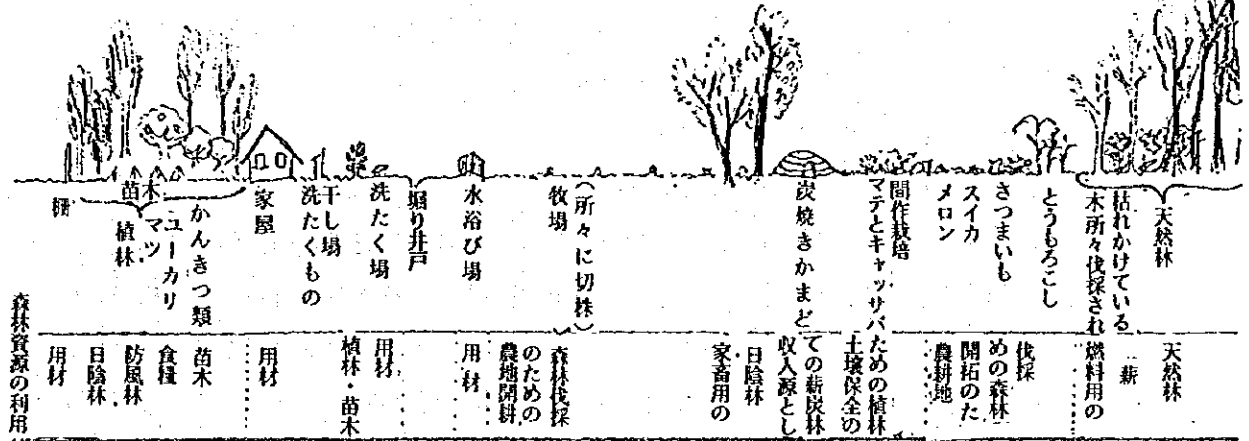 天然林
枯れかけている
木所々伐採され
とうもろこし
さつまいも
スイカ
メロン
間作栽培
マテとキャッサバ
炭焼きかまど
(所々に切株)
牧場
水浴び場
堀り井戸
洗たく場
干し場
洗たくもの
家屋
かんきつ類
ユーカリ
マツ
植林
苗木
柵
天然林
薪
燃料用の
伐採
めの森林
開拓のた
農耕地
ための植林
土壌保全の
ての薪炭林
収入源とし
日陰林
家畜用の
森林伐採
のための
農地開耕
用材
用材
植林・苗木
用材
苗木
食糧
防風林
日陰林
用材
森林資源の利用